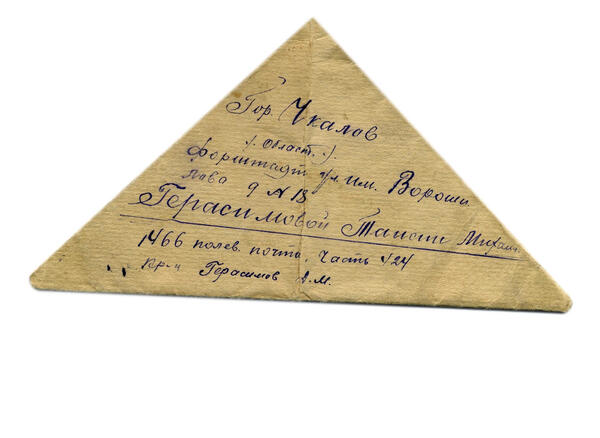 Гор. Чкалов
(. Област. .)
Форштадт ул. им. Вороши
лова 9 А 18
Герасимовой Таисии Михаил
1466 полев. почта. часть 424
Кр-ц Герасимов А.М.